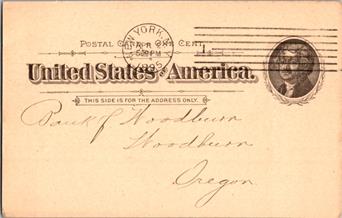 POSTAL CARD ONE CENT.
NEW YORK, N.Y.
APR
5 30 PM
1895
United States of America.
THIS SIDE IS FOR THE ADDRESS ONLY.
Bank of Woodburn
Woodburn
Oregon.